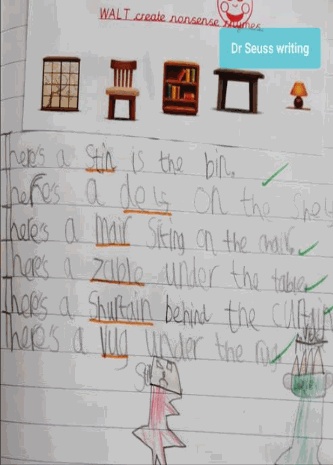 WALT create nonsense rhymes.
Dr Seuss writing
There's a stin is the bin.
a on the
There's a mair siting on the chair.
There's a zable under the table.
There's a shurtain behind the curtain
There's a vug under the rug.